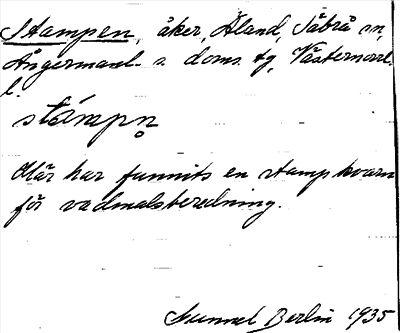 Stampen, åker, Åland, Säbrå sn,
Ångermanl. s. doms. tg, Västernorrl.
l.
stámpn̥
Här har funnits en stampkvarn
för vadmalsberedning.
Gunnel Berlin 1935